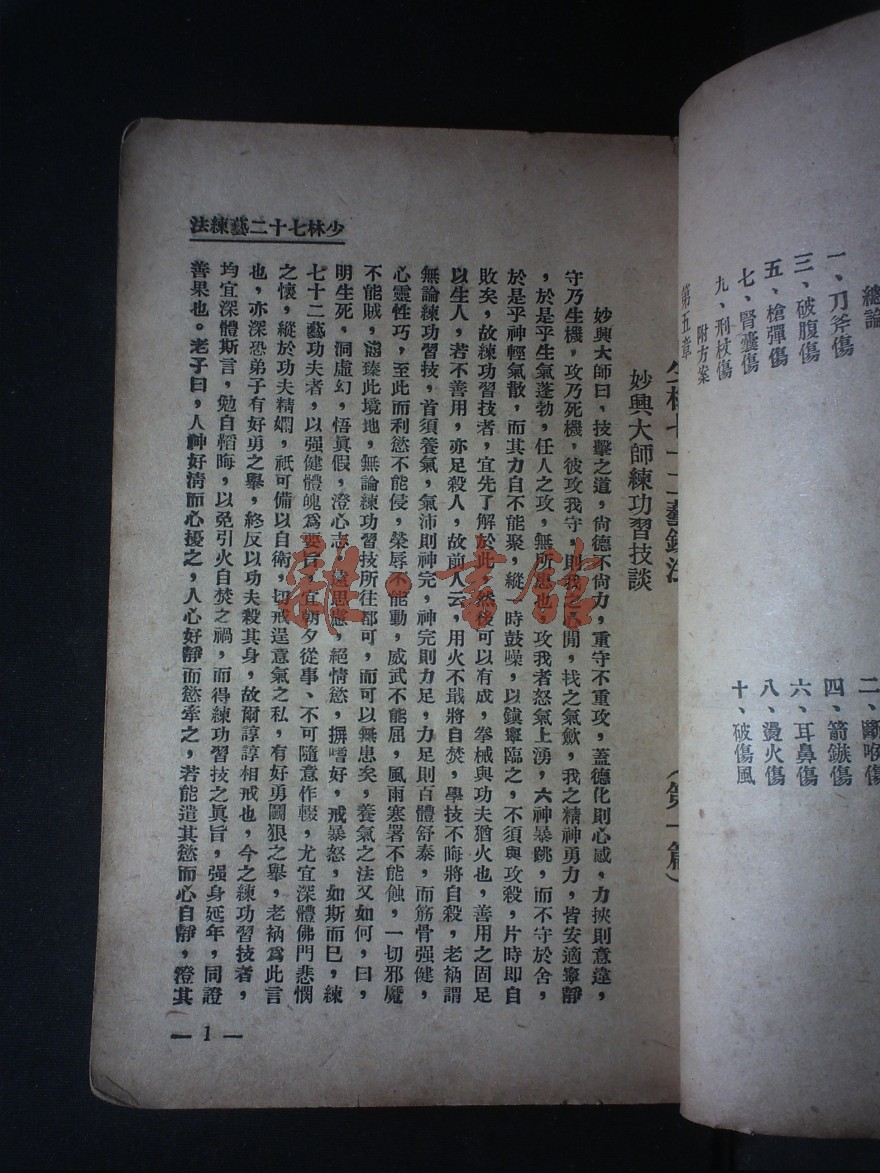 總論
一、刀斧傷
二、斷喉傷
三、破腹傷
四、箭鏃傷
五、槍彈傷
六、耳鼻傷
七、腎囊傷
八、燙火傷
九、刑杖傷
十、破傷風
附方案
第五章
(第一篇)
妙興大師練功習技談
妙興大師曰,技擊之道,尙德不尙力,重守不重攻,蓋德化則心感,力挾則意違,
守乃生機,攻乃死機,彼攻我守,則我之心閒,找之氣歛,我之精神勇力,皆安適寧靜
,於是乎生氣蓬勃,任人之攻,無所患也,攻我者怒氣上湧,六神暴跳,而不守於舍,
於是乎神輕氣散,而其力自不能聚,縱一時鼓噪,以鎭寧臨之,不須與攻殺,片時即自
敗矣,故練功習技者,宜先了解於此,然後可以有成,拳械與功夫猶火也,善用之固足
以生人,若不善用,亦足殺人,故前人云,用火不戢將自焚,學技不晦將自殺,老衲謂
無論練功習技,首須養氣,氣沛則神完,神完則力足,力足則百體舒泰,而筋骨强健,
心靈性巧,至此而利慾不能侵,榮辱不能動,威武不能屈,風雨寒署不能蝕,一切邪魔
不能賊,溺臻此境地,無論練功習技所往都可,而可以無患矣,養氣之法又如何,曰,
明生死,洞虛幻,悟眞假,澄心志,遠思慮,絕情慾,摒嗜好,戒暴怒,如斯而已,練
七十二藝功夫者,以强健體魄爲要旨,宜朝夕從事、不可隨意作輟,尤宜深體佛門悲憫
之懷,縱於功夫精嫻,祇可備以自衛,切戒逞意氣之私,有好勇鬭狠之舉,老衲爲此言
也,亦深恐弟子有好勇之舉,終反以功夫殺其身,故爾諄諄相戒也,今之練功習技者,
均宜深體斯言,勉自韜晦,以免引火自焚之禍,而得練功習技之眞旨,强身延年,同證
善果也。老子曰,人神好淸而心擾之,人心好靜而慾牽之,若能遣其慾而心自靜,澄其
少林七十二藝練法
— 1 —
雜·書館